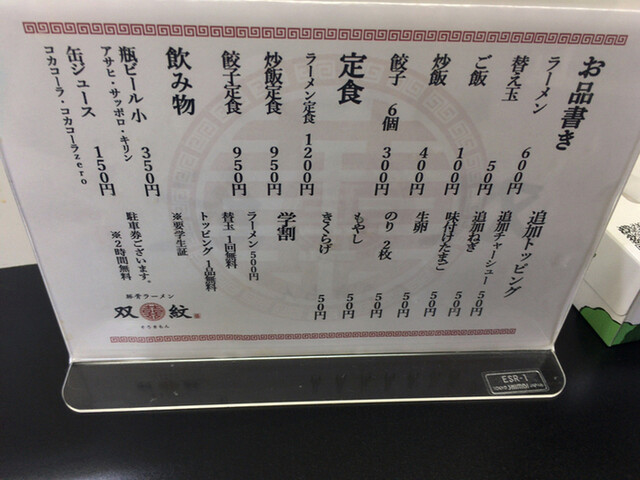 お品書き
ラーメン 600円
替え玉 50円
ご飯 100円
炒飯 400円
餃子 6個 300円
定食
ラーメン定食 1200円
炒飯定食 950円
餃子定食 950円
飲み物
瓶ビール 小 350円
アサヒ・サッポロ・キリン
缶ジュース 150円
コカコーラ・コカコーラzero
追加トッピング
追加チャーシュー 50円
追加ねぎ 50円
味付けたまご 50円
生卵 50円
のり 2枚 50円
もやし 50円
きくらげ 50円
学割
ラーメン 500円
替玉 1回無料
トッピング 1品無料
※要学生証
駐車券ございます。
※2時間無料
豚骨ラーメン
双紋
ESR-1